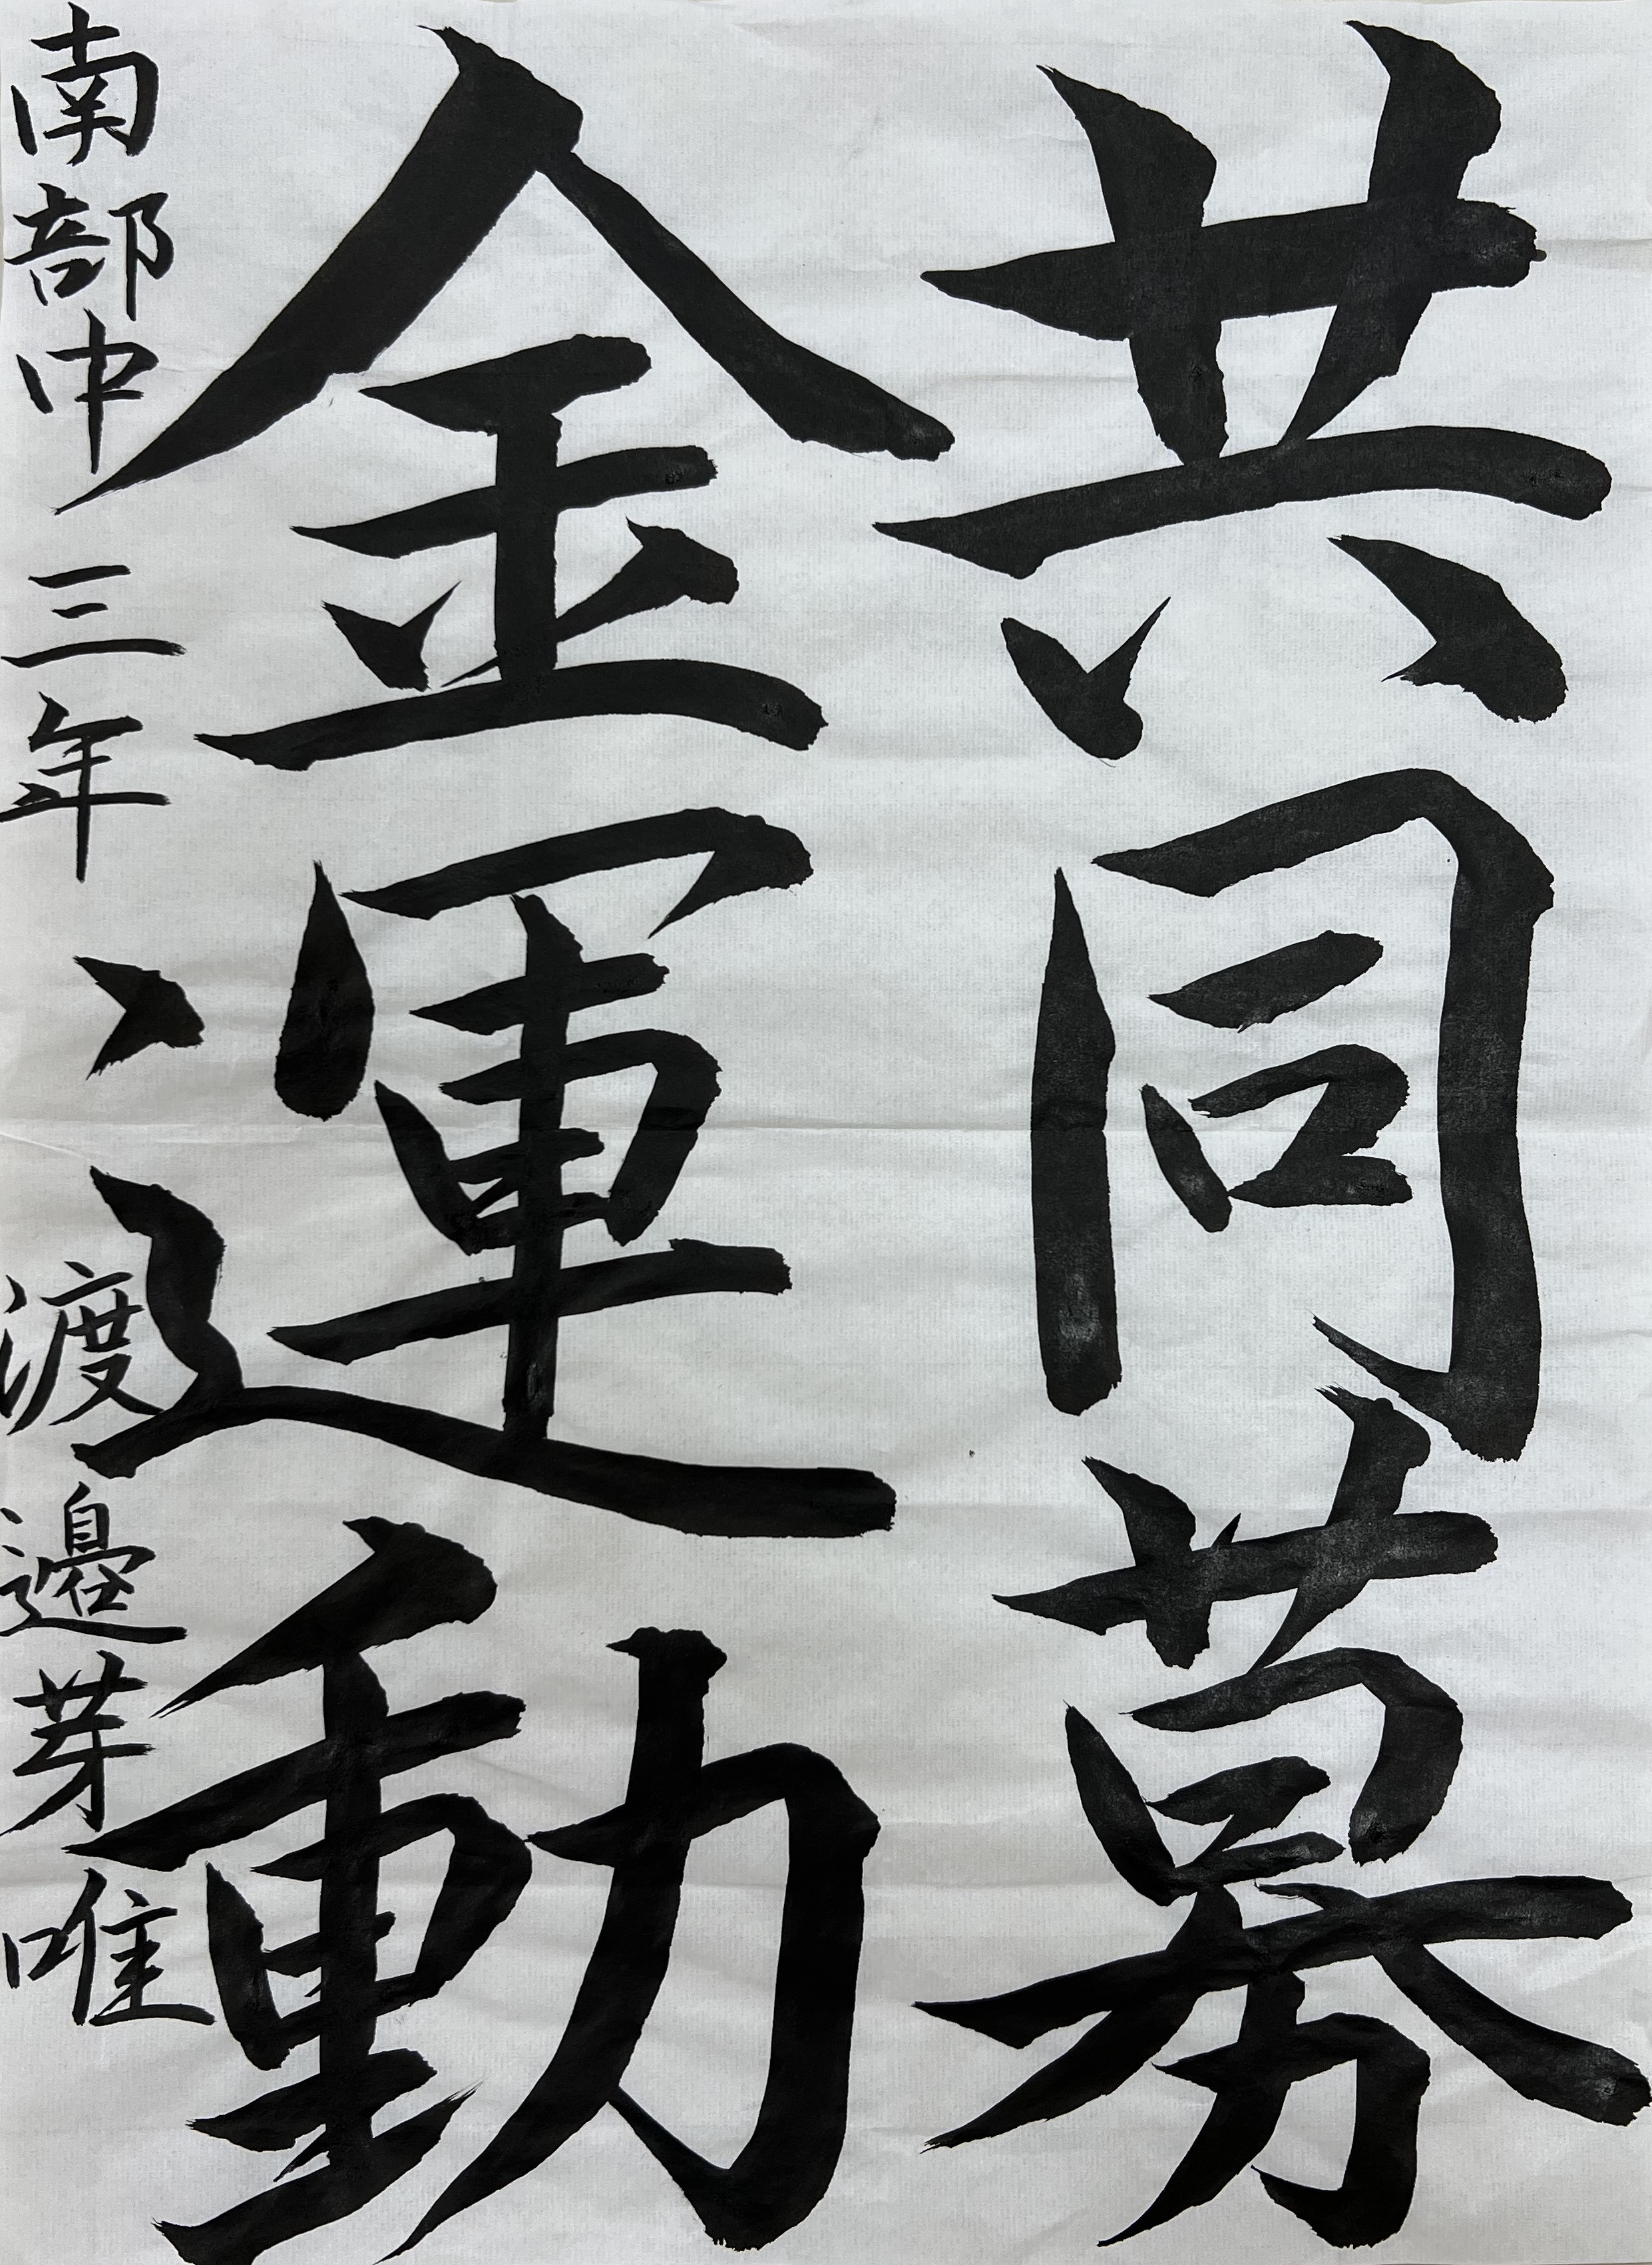 共同募
金運動
南部中三年 渡邊芽唯